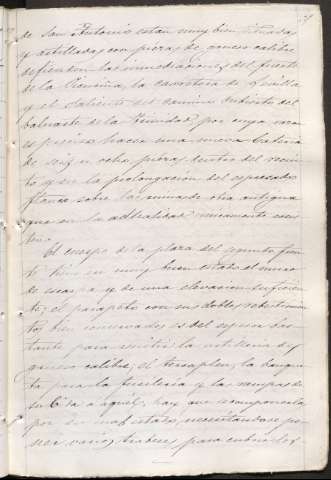 de San Antonio estan muy bien situadas
y artilladas con piezas de grueso calibre
defienden las inmediaciones del fuerte
de la Picuriña, la carretera de Sevilla
y el saliente del camino cubierto del
baluarte de la Trinidad, por cuya razon
es preciso hacer una nueva bateria
de seis u ocho piezas dentro del recin-
to y en la prolongacion del espresado
flanco sobre las ruinas de otra antigua
que en la actualidad unicamente exis-
ten.
El cuerpo de la plaza del segundo fren-
te tiene en muy buen estado el muro
de escarpa y de una elevacion suficien-
te; el parapeto con sus dobles revestimien-
tos bien conservados es del espesor bas-
tante para resistir la artilleria de
grueso calibre; el terraplen, la banque-
ta para la fusileria y las rampas de
subida a aquel, hay que recomponerla
por su mal estado, necesitandose po-
ner varios traveses para cubrir los